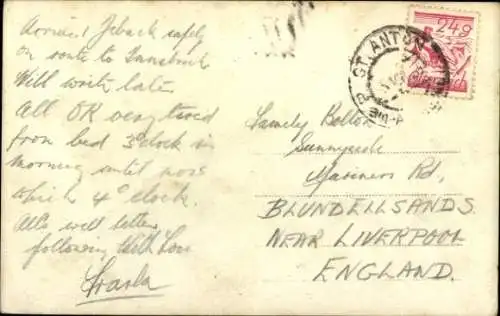 Arrived Zeback safely
en route to Innsbruck
Will write later
All OK very tired
from bed 3 o'clock in
morning until now
which 4 o'clock.
All's well letter
following With Love
Family Bolton
Sunnyside
Mariners Rd,
BLUNDELLSANDS
NEAR LIVERPOOL
ENGLAND.
ST. ANTON
24 g